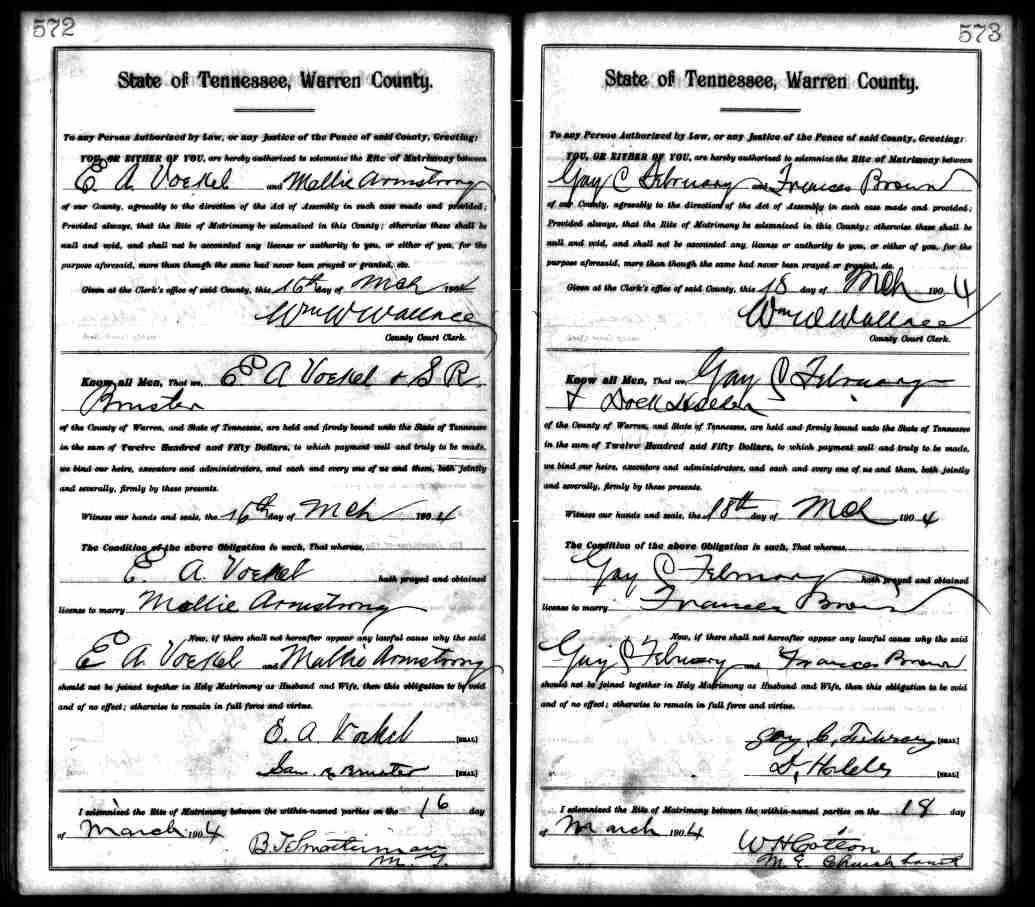 572
State of Tennessee, Warren County.
To any Person Authorized by Law, or any Justice of the Peace of said County, Greeting:
YOU, OR EITHER OF YOU, are hereby authorized to solemnize the Rite of Matrimony between
E A Voekel and Mollie Armstrong
of our County, agreeably to the direction of the Act of Assembly in such case made and provided;
Provided always, that the Rite of Matrimony be solemnized in this County; otherwise these shall be
null and void, and shall not be accounted any license or authority to you, or either of you, for the
purpose aforesaid, more than though the same had never been prayed or granted, etc.
Given at the Clerk's office of said County, this 16th day of Mch 1904
Wm W Wallace
County Court Clerk.
Know all Men, That we, E A Voekel & S R.
Bruster
of the County of Warren, and State of Tennessee, are held and firmly bound unto the State of Tennessee
in the sum of Twelve Hundred and Fifty Dollars, to which payment well and truly to be made,
we bind our heirs, executors and administrators, and each and every one of us and them, both jointly
and severally, firmly by these presents.
Witness our hands and seals, the 16th day of Mch 1904
The Condition of the above Obligation is such, That whereas,
E. A. Voekel hath prayed and obtained
license to marry Mollie Armstrong
Now, if there shall not hereafter appear any lawful cause why the said
E A. Voekel and Mollie Armstrong
should not be joined together in Holy Matrimony as Husband and Wife, then this obligation to be void
and of no effect; otherwise to remain in full force and virtue.
E. A. Voekel [SEAL]
Sam R Bruster [SEAL]
I solemnized the Rite of Matrimony between the within-named parties on the 16 day
of March 1904
B. T. Smotherman
M. G.
573
State of Tennessee, Warren County.
To any Person Authorized by Law, or any Justice of the Peace of said County, Greeting:
YOU, OR EITHER OF YOU, are hereby authorized to solemnize the Rite of Matrimony between
Gay C February and Frances Brown
of our County, agreeably to the direction of the Act of Assembly in such case made and provided;
Provided always, that the Rite of Matrimony be solemnized in this County; otherwise these shall be
null and void, and shall not be accounted any license or authority to you, or either of you, for the
purpose aforesaid, more than though the same had never been prayed or granted, etc.
Given at the Clerk's office of said County, this 18 day of Mch 1904
Wm W Wallace
County Court Clerk.
Know all Men, That we, Gay C February
&
of the County of Warren, and State of Tennessee, are held and firmly bound unto the State of Tennessee
in the sum of Twelve Hundred and Fifty Dollars, to which payment well and truly to be made,
we bind our heirs, executors and administrators, and each and every one of us and them, both jointly
and severally, firmly by these presents.
Witness our hands and seals, the 18th day of Mch 1904
The Condition of the above Obligation is such, That whereas,
Gay C February hath prayed and obtained
license to marry Frances Brown
Now, if there shall not hereafter appear any lawful cause why the said
Gay C February and Frances Brown
should not be joined together in Holy Matrimony as Husband and Wife, then this obligation to be void
and of no effect; otherwise to remain in full force and virtue.
Gay C. February [SEAL]
D, [SEAL]
I solemnized the Rite of Matrimony between the within-named parties on the 18 day
of March 1904
W H Cotton
M. E. Church South